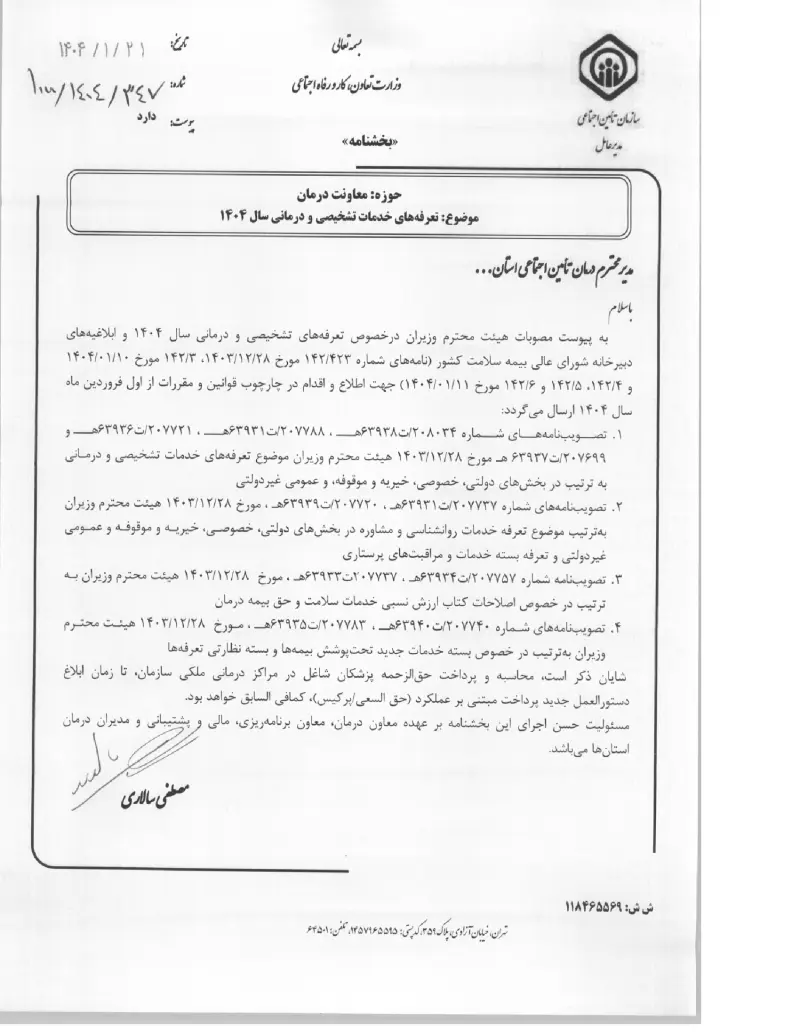 بسمه تعالی
وزارت تعاون، کار و رفاه اجتماعی
«بخشنامه»
سازمان تأمین اجتماعی
مدیرعامل
تاریخ: ۱۴۰۴/۱/۲۱
شماره: ۱۰۰۰/۱۴۰۴/۳۴۷
پیوست: دارد
حوزه: معاونت درمان
موضوع: تعرفه‌های خدمات تشخیصی و درمانی سال ۱۴۰۴
مدیر محترم درمان تأمین اجتماعی استان...
باسلام
به پیوست مصوبات هیئت محترم وزیران درخصوص تعرفه‌های تشخیصی و درمانی سال ۱۴۰۴ و ابلاغیه‌های
دبیرخانه شورای عالی بیمه سلامت کشور (نامه‌های شماره ۱۴۲/۴۲۳ مورخ ۱۴۰۳/۱۲/۲۸، ۱۴۲/۳ مورخ ۱۴۰۴/۰۱/۱۰
و ۱۴۲/۴، ۱۴۲/۵ و ۱۴۲/۶ مورخ ۱۴۰۴/۰۱/۱۱) جهت اطلاع و اقدام در چارچوب قوانین و مقررات از اول فروردین ماه
سال ۱۴۰۴ ارسال می‌گردد:
۱. تصویبنامه‌های شماره ۲۰۸۰۳۴/ت۶۳۹۳۸هـ ، ۲۰۷۷۸۸/ت۶۳۹۳۱هـ ، ۲۰۷۷۲۱/ت۶۳۹۳۶هـ و
۲۰۷۶۹۹/ت۶۳۹۳۷ هـ مورخ ۱۴۰۳/۱۲/۲۸ هیئت محترم وزیران موضوع تعرفه‌های خدمات تشخیصی و درمانی
به ترتیب در بخش‌های دولتی، خصوصی، خیریه و موقوفه، و عمومی غیردولتی
۲. تصویبنامه‌های شماره ۲۰۷۷۳۷/ت۶۳۹۳۱هـ ، ۲۰۷۷۲۰/ت۶۳۹۳۹هـ ، مورخ ۱۴۰۳/۱۲/۲۸ هیئت محترم وزیران
به‌ترتیب موضوع تعرفه خدمات روانشناسی و مشاوره در بخش‌های دولتی، خصوصی، خیریه و موقوفه و عمومی
غیردولتی و تعرفه بسته خدمات و مراقبت‌های پرستاری
۳. تصویبنامه شماره ۲۰۷۷۵۷/ت۶۳۹۳۴هـ ، ۲۰۷۷۳۷/ت۶۳۹۳۳هـ ، مورخ ۱۴۰۳/۱۲/۲۸ هیئت محترم وزیران به
ترتیب در خصوص اصلاحات کتاب ارزش نسبی خدمات سلامت و حق بیمه درمان
۴. تصویبنامه‌های شماره ۲۰۷۷۴۰/ت۶۳۹۴۰هـ ، ۲۰۷۷۸۳/ت۶۳۹۳۵هـ ، مورخ ۱۴۰۳/۱۲/۲۸ هیئت محترم
وزیران به‌ترتیب در خصوص بسته خدمات جدید تحت‌پوشش بیمه‌ها و بسته نظارتی تعرفه‌ها
شایان ذکر است، محاسبه و پرداخت حق‌الزحمه پزشکان شاغل در مراکز درمانی ملکی سازمان، تا زمان ابلاغ
دستورالعمل جدید پرداخت مبتنی بر عملکرد (حق السعی/پرکیس)، کمافی السابق خواهد بود.
مسئولیت حسن اجرای این بخشنامه بر عهده معاون درمان، معاون برنامه‌ریزی، مالی و پشتیبانی و مدیران درمان
استان‌ها می‌باشد.
مصطفی سالاری
ش ش: ۱۱۸۴۶۵۵۶۹
تهران، خیابان آزادی، پلاک ۳۵۹، کدپستی: ۱۴۵۷۹۶۵۵۹۵، تلفن: ۶۴۵۰۱